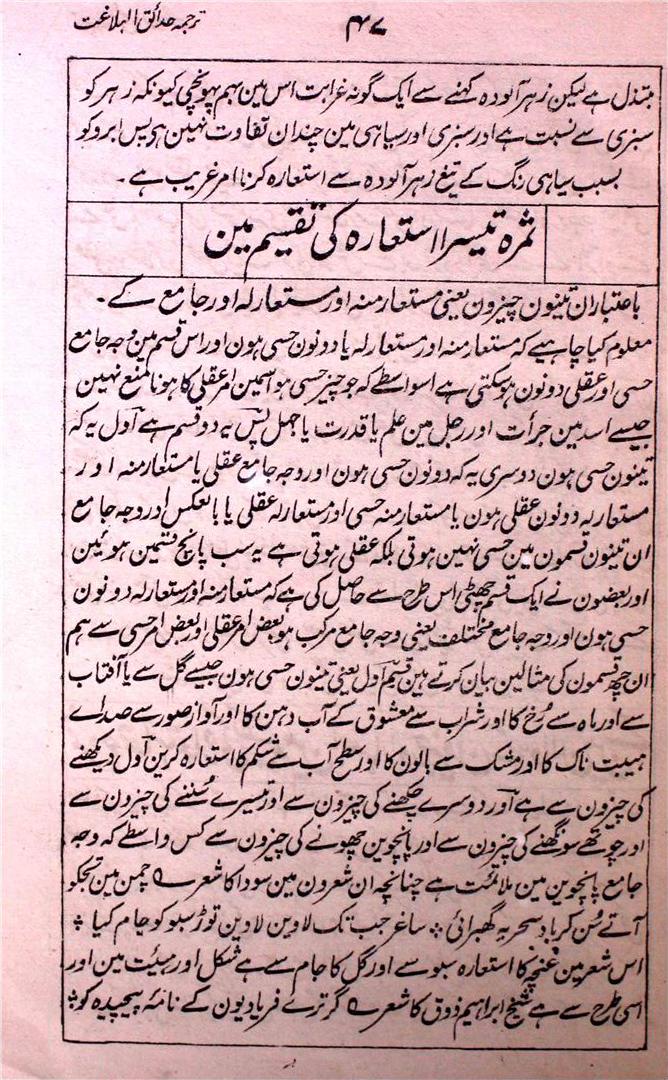 ۴۷
ترجمہ حدائق البلاغت
مبتذل ہے لیکن زہر آلودہ کہنے سے ایک گونہ غرابت اس مین بہم پہونچی کیونکہ زہر کو
سبزی سے نسبت ہے اور سبزی اور سیاہی مین چندان تفاوت نہین ہی پس ابرو کو
بسبب سیاہی رنگ کے تیغ زہر آلودہ سے استعارہ کرنا امر غریب ہے۔
ثمرہ تیسرا استعارہ کی تقسیم مین
باعتبار ان تینون چیزون یعنی مستعار منہ اور مستعار لہ اور جامع کے۔
معلوم کیا چاہیے کہ مستعار منہ اور مستعار لہ یا دونون حسی ہون اور اس قسم مین وجہ جامع
حسی اور عقلی دونون ہو سکتی ہے اسواسطے کہ جو چیز حسی ہو اسمین امر عقلی کا ہونا ممتنع نہین
جیسے اسد مین جرأت اور رجل مین علم یا قدرت یا جہل پس یہ دو قسم ہے اول یہ کہ
تینون حسی ہون دوسری یہ کہ دونون حسی ہون اور وجہ جامع عقلی یا مستعار منہ اور
مستعار لہ دونون عقلی ہون یا مستعار منہ حسی اور مستعار لہ عقلی یا بالعکس اور وجہ جامع
ان تینون قسمون مین حسی نہین ہوتی بلکہ عقلی ہوتی ہے یہ سب پانچ قسمین ہوئین
اور بعضون نے ایک قسم چھٹی اس طرح سے حاصل کی ہے کہ مستعار منہ اور مستعار لہ دونون
حسی ہون اور وجہ جامع مختلف یعنی وجہ جامع مرکب ہو بعض امر عقلی اور بعض امر حسی سے ہم
ان چھ قسمون کی مثالین بیان کرتے ہین قسم اول یعنی تینون حسی ہون جیسے گل سے یا آفتاب
سے اور ماہ سے رُخ کا اور شراب سے معشوق کے آب دہن کا اور آواز صور سے صداے
ہیبت ناک کا اور مشک سے بالون کا اور سطح آب سے شکم کا استعارہ کرین اول دیکھنے
کی چیزون سے ہے اور دوسرے چکھنے کی چیزون سے اور تیسرے سُننے کی چیزون سے
اور چوتھے سونگھنے کی چیزون سے اور پانچوین چھونے کی چیزون سے کس واسطے کہ وجہ
جامع پانچوین مین ملائمت ہے چنانچہ ان شعرون مین سودا کا شعر ؎ چمن مین تجکو
آتے سُن کر باد سحر یہ گھبرائی ؞ ساغر جب تک لاوین لاوین توڑ سبو کو جام کیا ؞
اس شعر مین غنچہ کا استعارہ سبو سے اور گل کا جام سے ہے شکل اور ہیئت مین اور
اسی طرح سے ہے شیخ ابراہیم ذوق کا شعر ؎ گر ترے فریادیون کے نامۂ پیچیدہ کو ؞